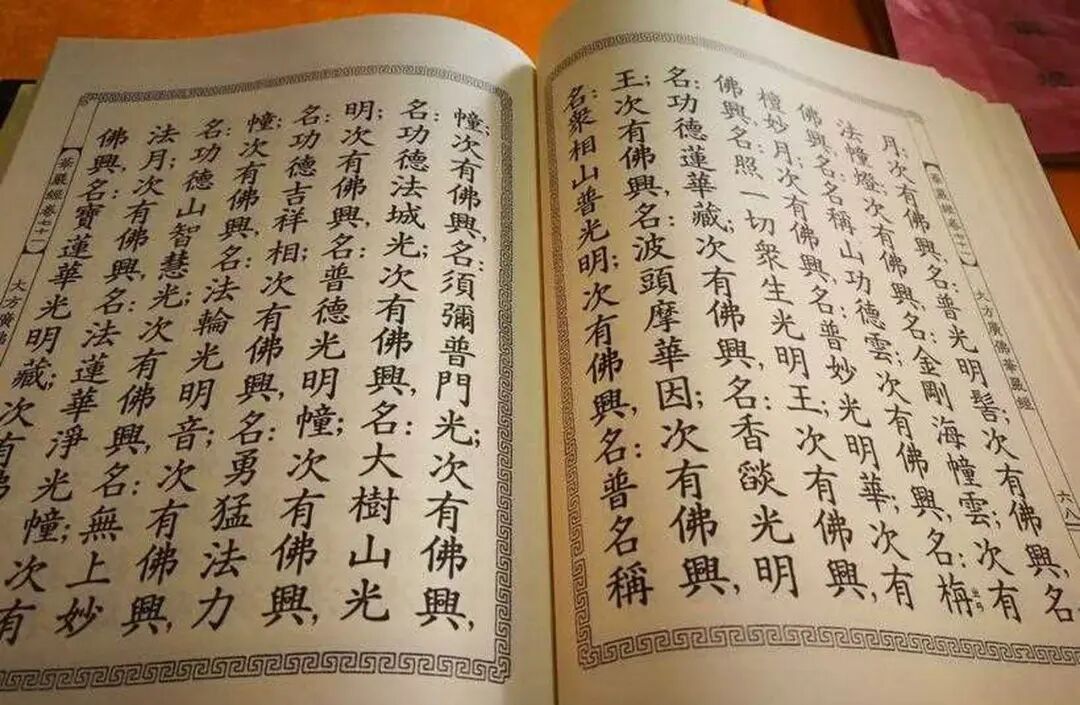 【華嚴經卷七十一】 大方廣佛華嚴經 六八
月;次有佛興,名:普光明髻;次有佛興,名
法幢燈;次有佛興,名:金剛海幢雲;次有
佛興,名:名稱山功德雲;次有佛興,名:栴
檀妙月;次有佛興,名:普妙光明華;次有
佛興,名:照一切衆生光明王;次有佛興,
名:功德蓮華藏;次有佛興,名:香燄光明
王;次有佛興,名:波頭摩華因;次有佛興,
名:衆相山普光明;次有佛興,名:普名稱
幢;次有佛興,名:須彌普門光;次有佛興,
名:功德法城光;次有佛興,名:大樹山光
明;次有佛興,名:普德光明幢;次有佛興,
名:功德吉祥相;次有佛興,名:勇猛法力
幢;次有佛興,名:法輪光明音;次有佛興,
名:功德山智慧光;次有佛興,名:無上妙
法月;次有佛興,名:法蓮華淨光幢;次有
佛興,名:寶蓮華光明藏;次有佛
【華嚴經卷七十一】 大方廣佛